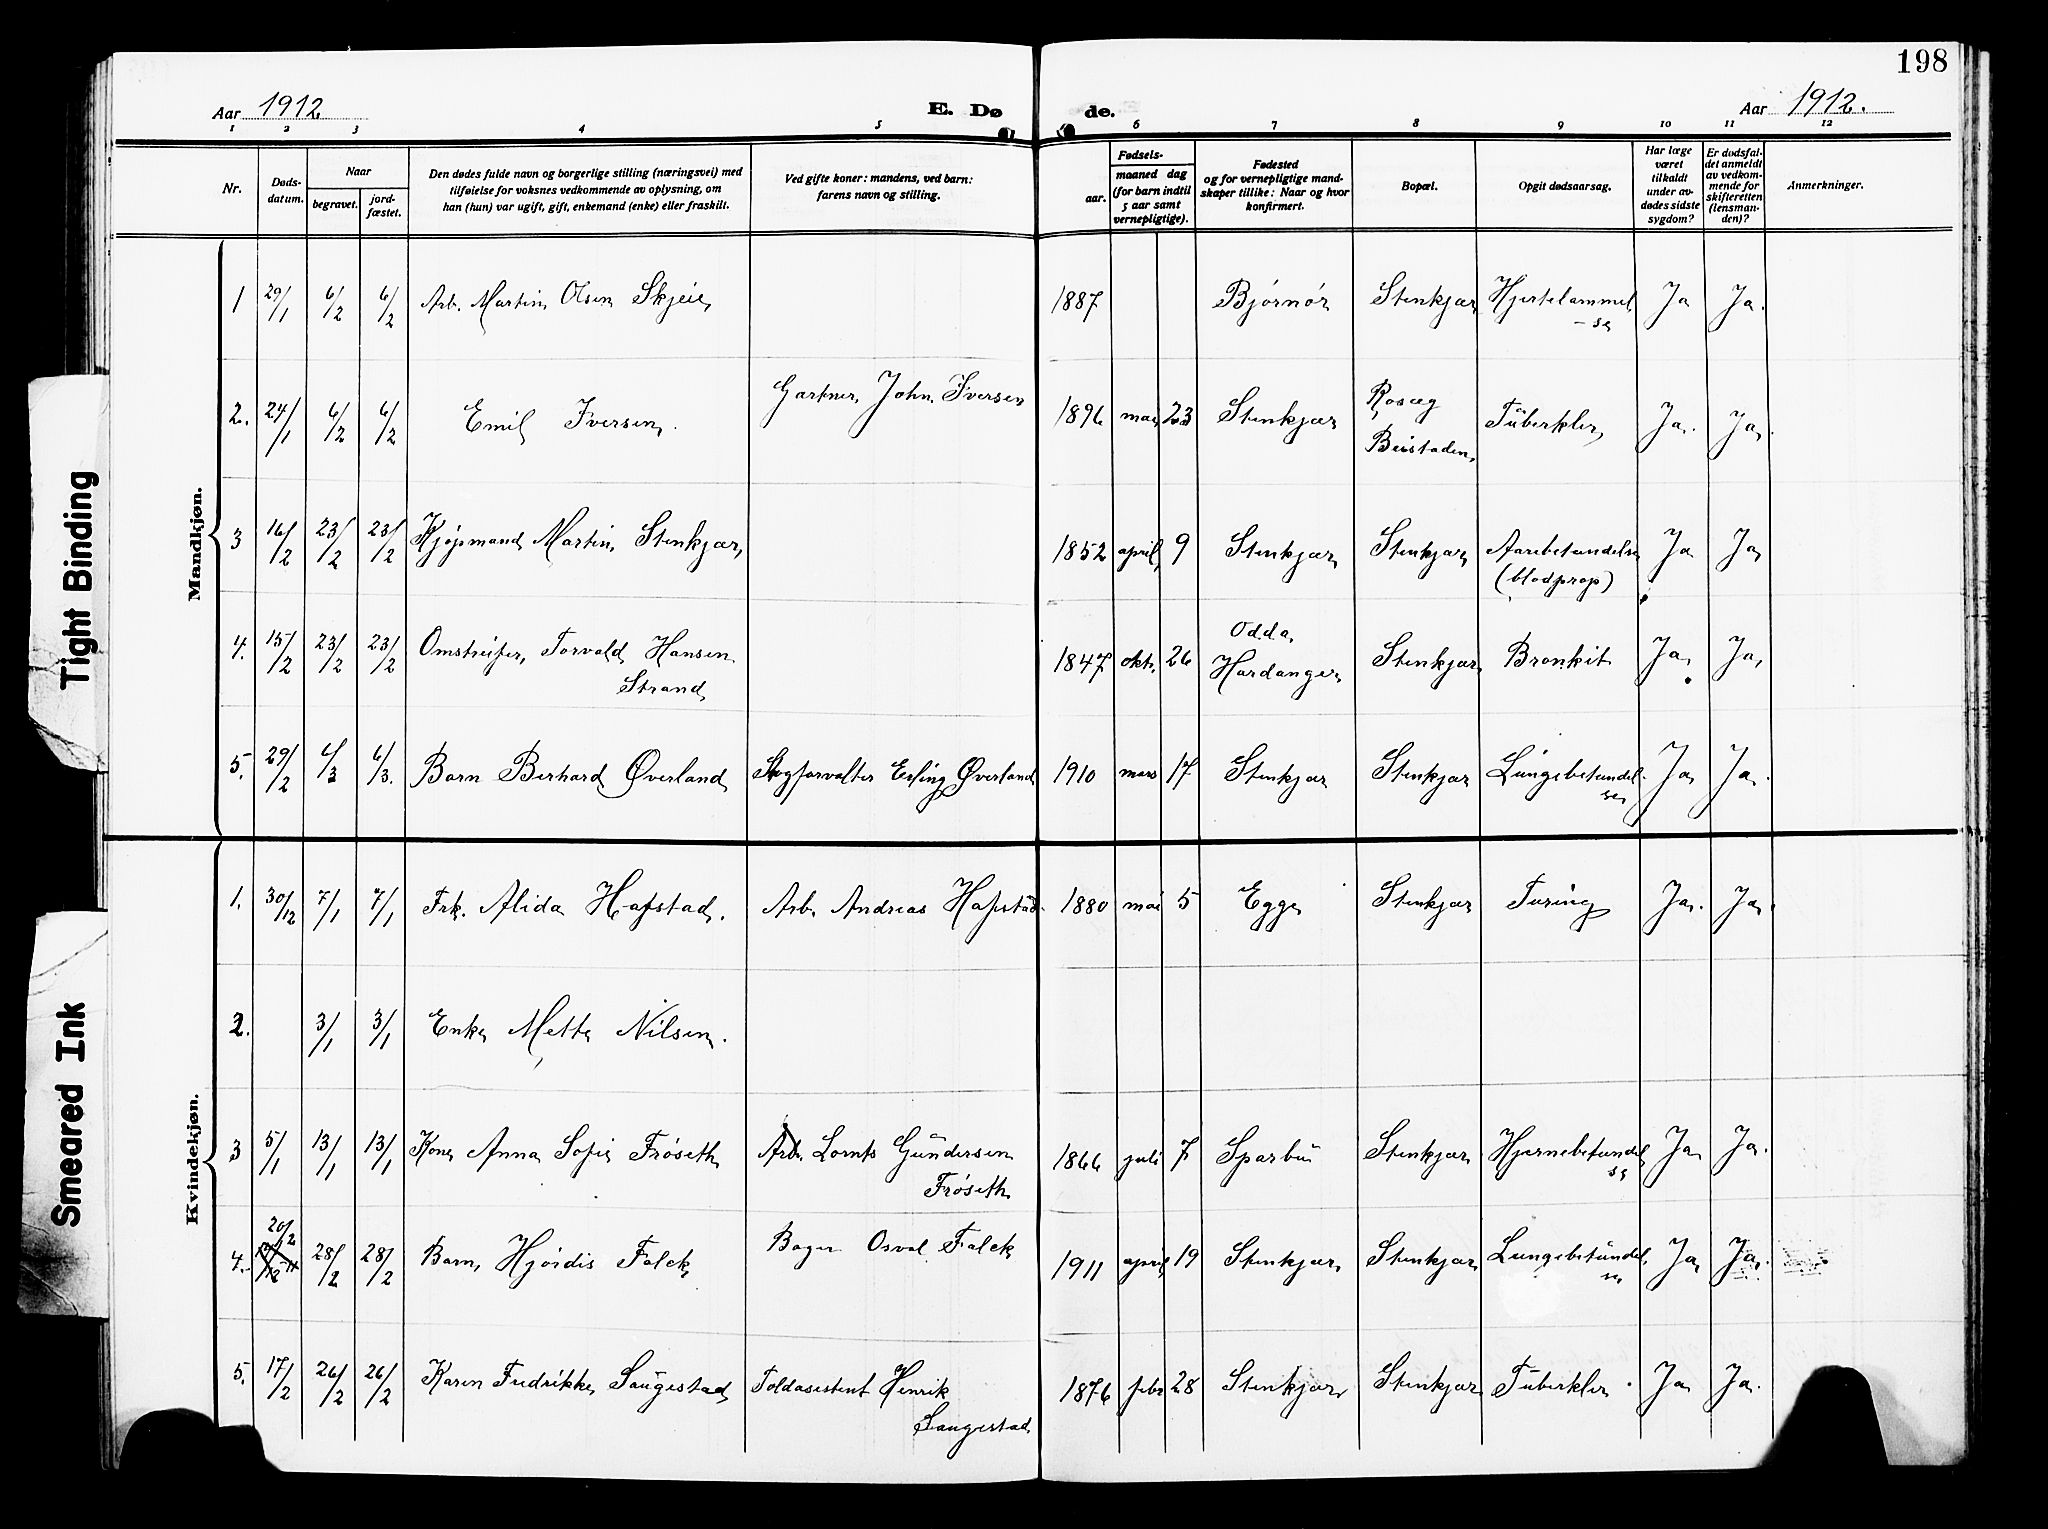 198
Aar 1912.
E. Dø
de.
Aar 1912.
1 2 3 4 5 6 7 8 9 10 11 12
Nr.
Døds-
datum.
Naar
begravet.
jord-
fæstet.
Den dødes fulde navn og borgerlige stilling (næringsvei) med
tilføielse for voksnes vedkommende av oplysning, om
han (hun) var ugift, gift, enkemand (enke) eller fraskilt.
Ved gifte koner: mandens, ved barn:
farens navn og stilling.
Fødsels-
aar.
maaned dag
(for barn indtil
5 aar samt
vernepligtige).
Fødested
og for vernepligtige mand-
skaper tillike: Naar og hvor
konfirmert.
Bopæl.
Opgit dødsaarsag.
Har læge
været
tilkaldt
under av-
dødes sidste
sygdom?
Er dødsfal-
det anmeldt
av vedkom-
mende for
skifteretten
(lensman-
den)?
Anmerkninger.
Mandkjøn.
1 29/1 6/2 6/2 Arb. Martin Olsen Skjeie 1887 Bjørnør Stenkjær Hjertelammel
-se Ja Ja.
2. 24/1 6/2 6/2 Emil Iversen. Gartner John Iversen 1896 mai 23 Stenkjær Roseg
Beistaden Tuberkler Ja. Ja.
3 16/2 23/2 23/2 Kjøpmand Martin Stenkjær, 1852 april 9 Stenkjær Stenkjær Aarebetændelse
(blodprop) Ja Ja
4. 15/2 23/2 23/2 Omstreifer, Torvald Hansen
Strand 1847 okt. 26 Odda,
Hardanger Stenkjær Bronkit Ja Ja,
5. 29/2 6/3 6/3. Barn Berhard Øverland Skogforvalter Erling Øverland 1910 mars 17 Stenkjær Stenkjær Lungebetændel
se Ja Ja.
Kvindekjøn.
1. 30/12 7/1 7/1 Frk. Alida Hafstad. Arb. Andreas Hafstad. 1880 mai 5 Egge Stenkjær Turing Ja. Ja.
2. 3/1 3/1 Enke Mette Nilsen.
3 5/1 13/1 13/1 Kone Anna Sofie Frøseth Arb. Lornts Gundersen
Frøseth 1866 juli 7 Sparbu Stenkjær Hjernebetændel
se Ja Ja.
4. 20/2 28/2 28/2 Barn Hjørdis Falck Bager Osval Falck 1911 april 19 Stenkjær Stenkjær Lungebetændel
se Ja Ja.
5. 17/2 26/2 26/2 Karen Fredrikke Saugestad Toldasistent Henrik
Saugestad 1876 febr 28 Stenkjær Stenkjær Tuberkler. Ja Ja.
Tight Binding
Smeared Ink